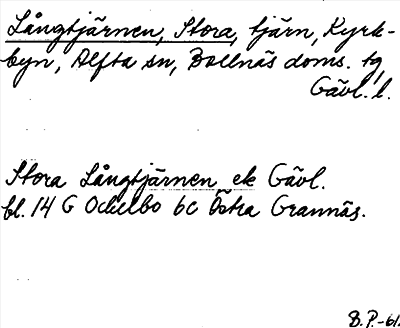 Långtjärnen, Stora, tjärn, Kyrk-
byn, Alfta sn, Bollnäs doms. tg
Gävl. l.
Stora Långtjärnen ek Gävl.
bl. 14 G Ockelbo 6c Östra Grannäs.
B.P.-61.